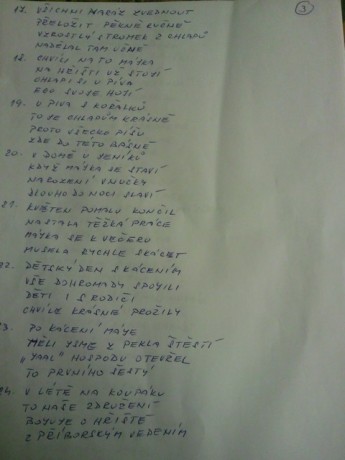 3
17. VŠICHNI NARÁZ ZVEDNOUT
PŘELOŽIT PĚKNĚ RUČNĚ
VZROSTLÝ STROMEK Z CHLAPŮ
NADĚLAL TAM UČNĚ
18. CHVÍLI NA TO MÁJKA
NA HŘIŠTI UŽ STOJÍ
CHLAPI SI U PIVA
EGO SVOJE HOJÍ
19. U PIVA S KOŘALKOU
TO JE CHLAPŮM KRÁSNĚ
PROTO VŠECKO PÍŠU
ZDE DO TÉTO BÁSNĚ
20. V DOMĚ U JENÍKŮ
KDYŽ MÁJKA SE STAVÍ
NAROZENÍ VNUČKY
DLOUHO DO NOCI SLAVÍ
21. KVĚTEN POMALU KONČIL
NASTALA TĚŽKÁ PRÁCE
MÁJKA SE K VEČERU
MUSELA RYCHLE SKÁCET
22. DĚTSKÝ DEN S KÁCENÍM
VŠE DOHROMADY SPOJILI
DĚTI I S RODIČI
CHVÍLE KRÁSNÉ PROŽILY
23. PO KÁCENÍ MÁJE
MĚLI JSME Z PEKLA ŠTĚSTÍ
"YAAL" HOSPODU OTEVŘEL
TO PRVNÍHO ŠESTÝ
24. V LÉTĚ NA KOUPÁKU
TO NAŠE ZDRUŽENÍ
BOJUJE O HŘIŠTĚ
S PŘÍBORSKÝM VEDENÍM